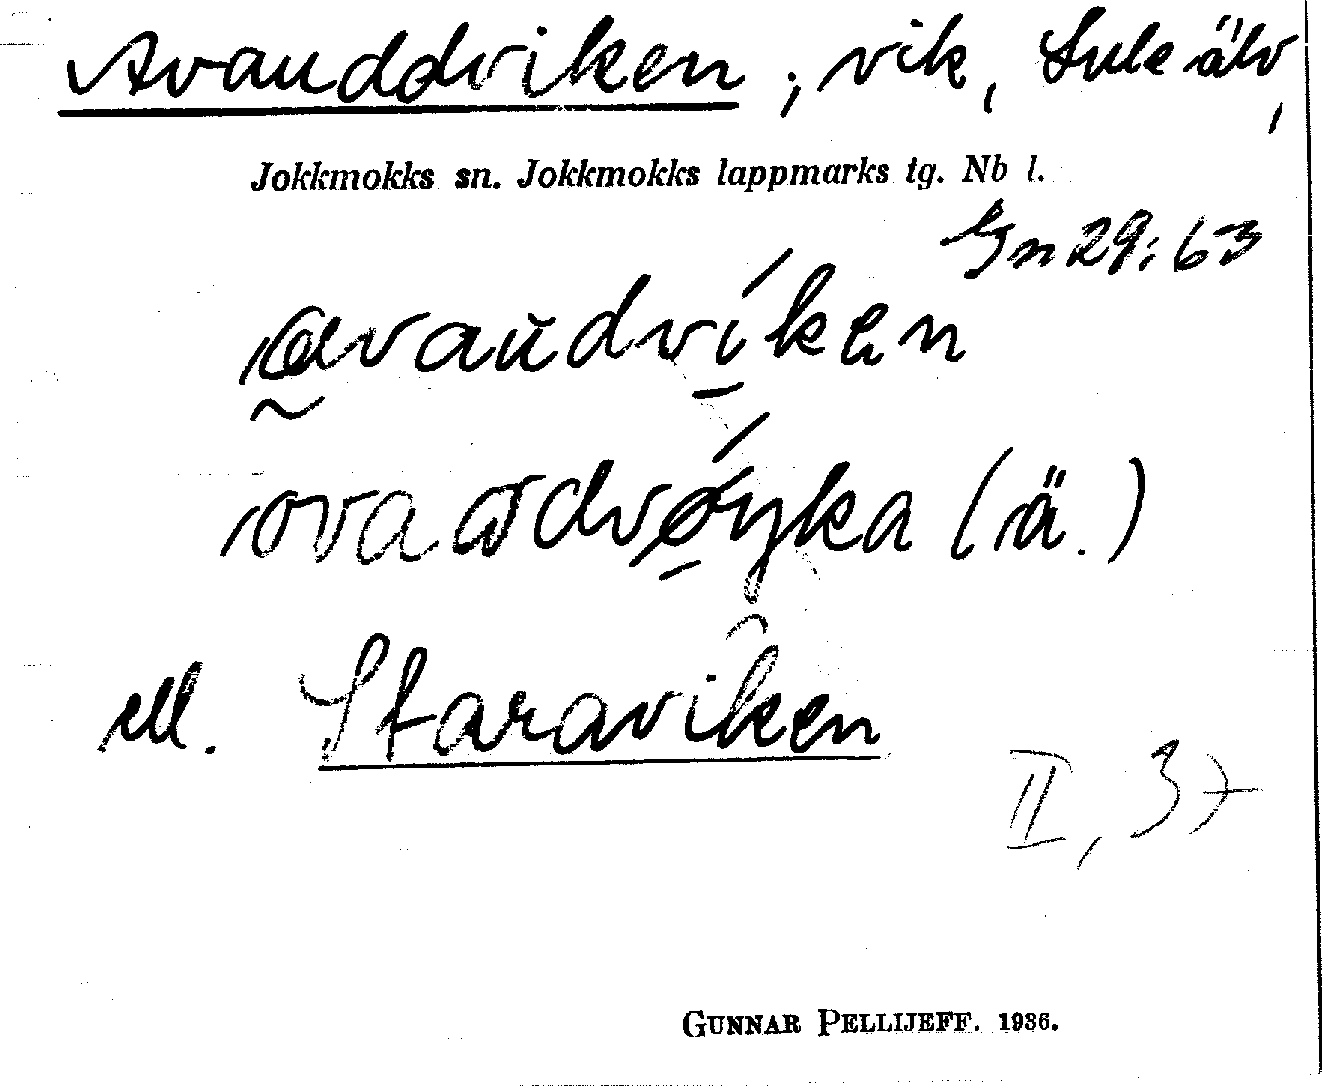 Avauddviken; vik, Lule älv,
Jokkmokks sn. Jokkmokks lappmarks tg. Nb l.
Gn 29:63
(ä.)
ell. Staraviken
II, 37
GUNNAR PELLIJEFF. 1936.